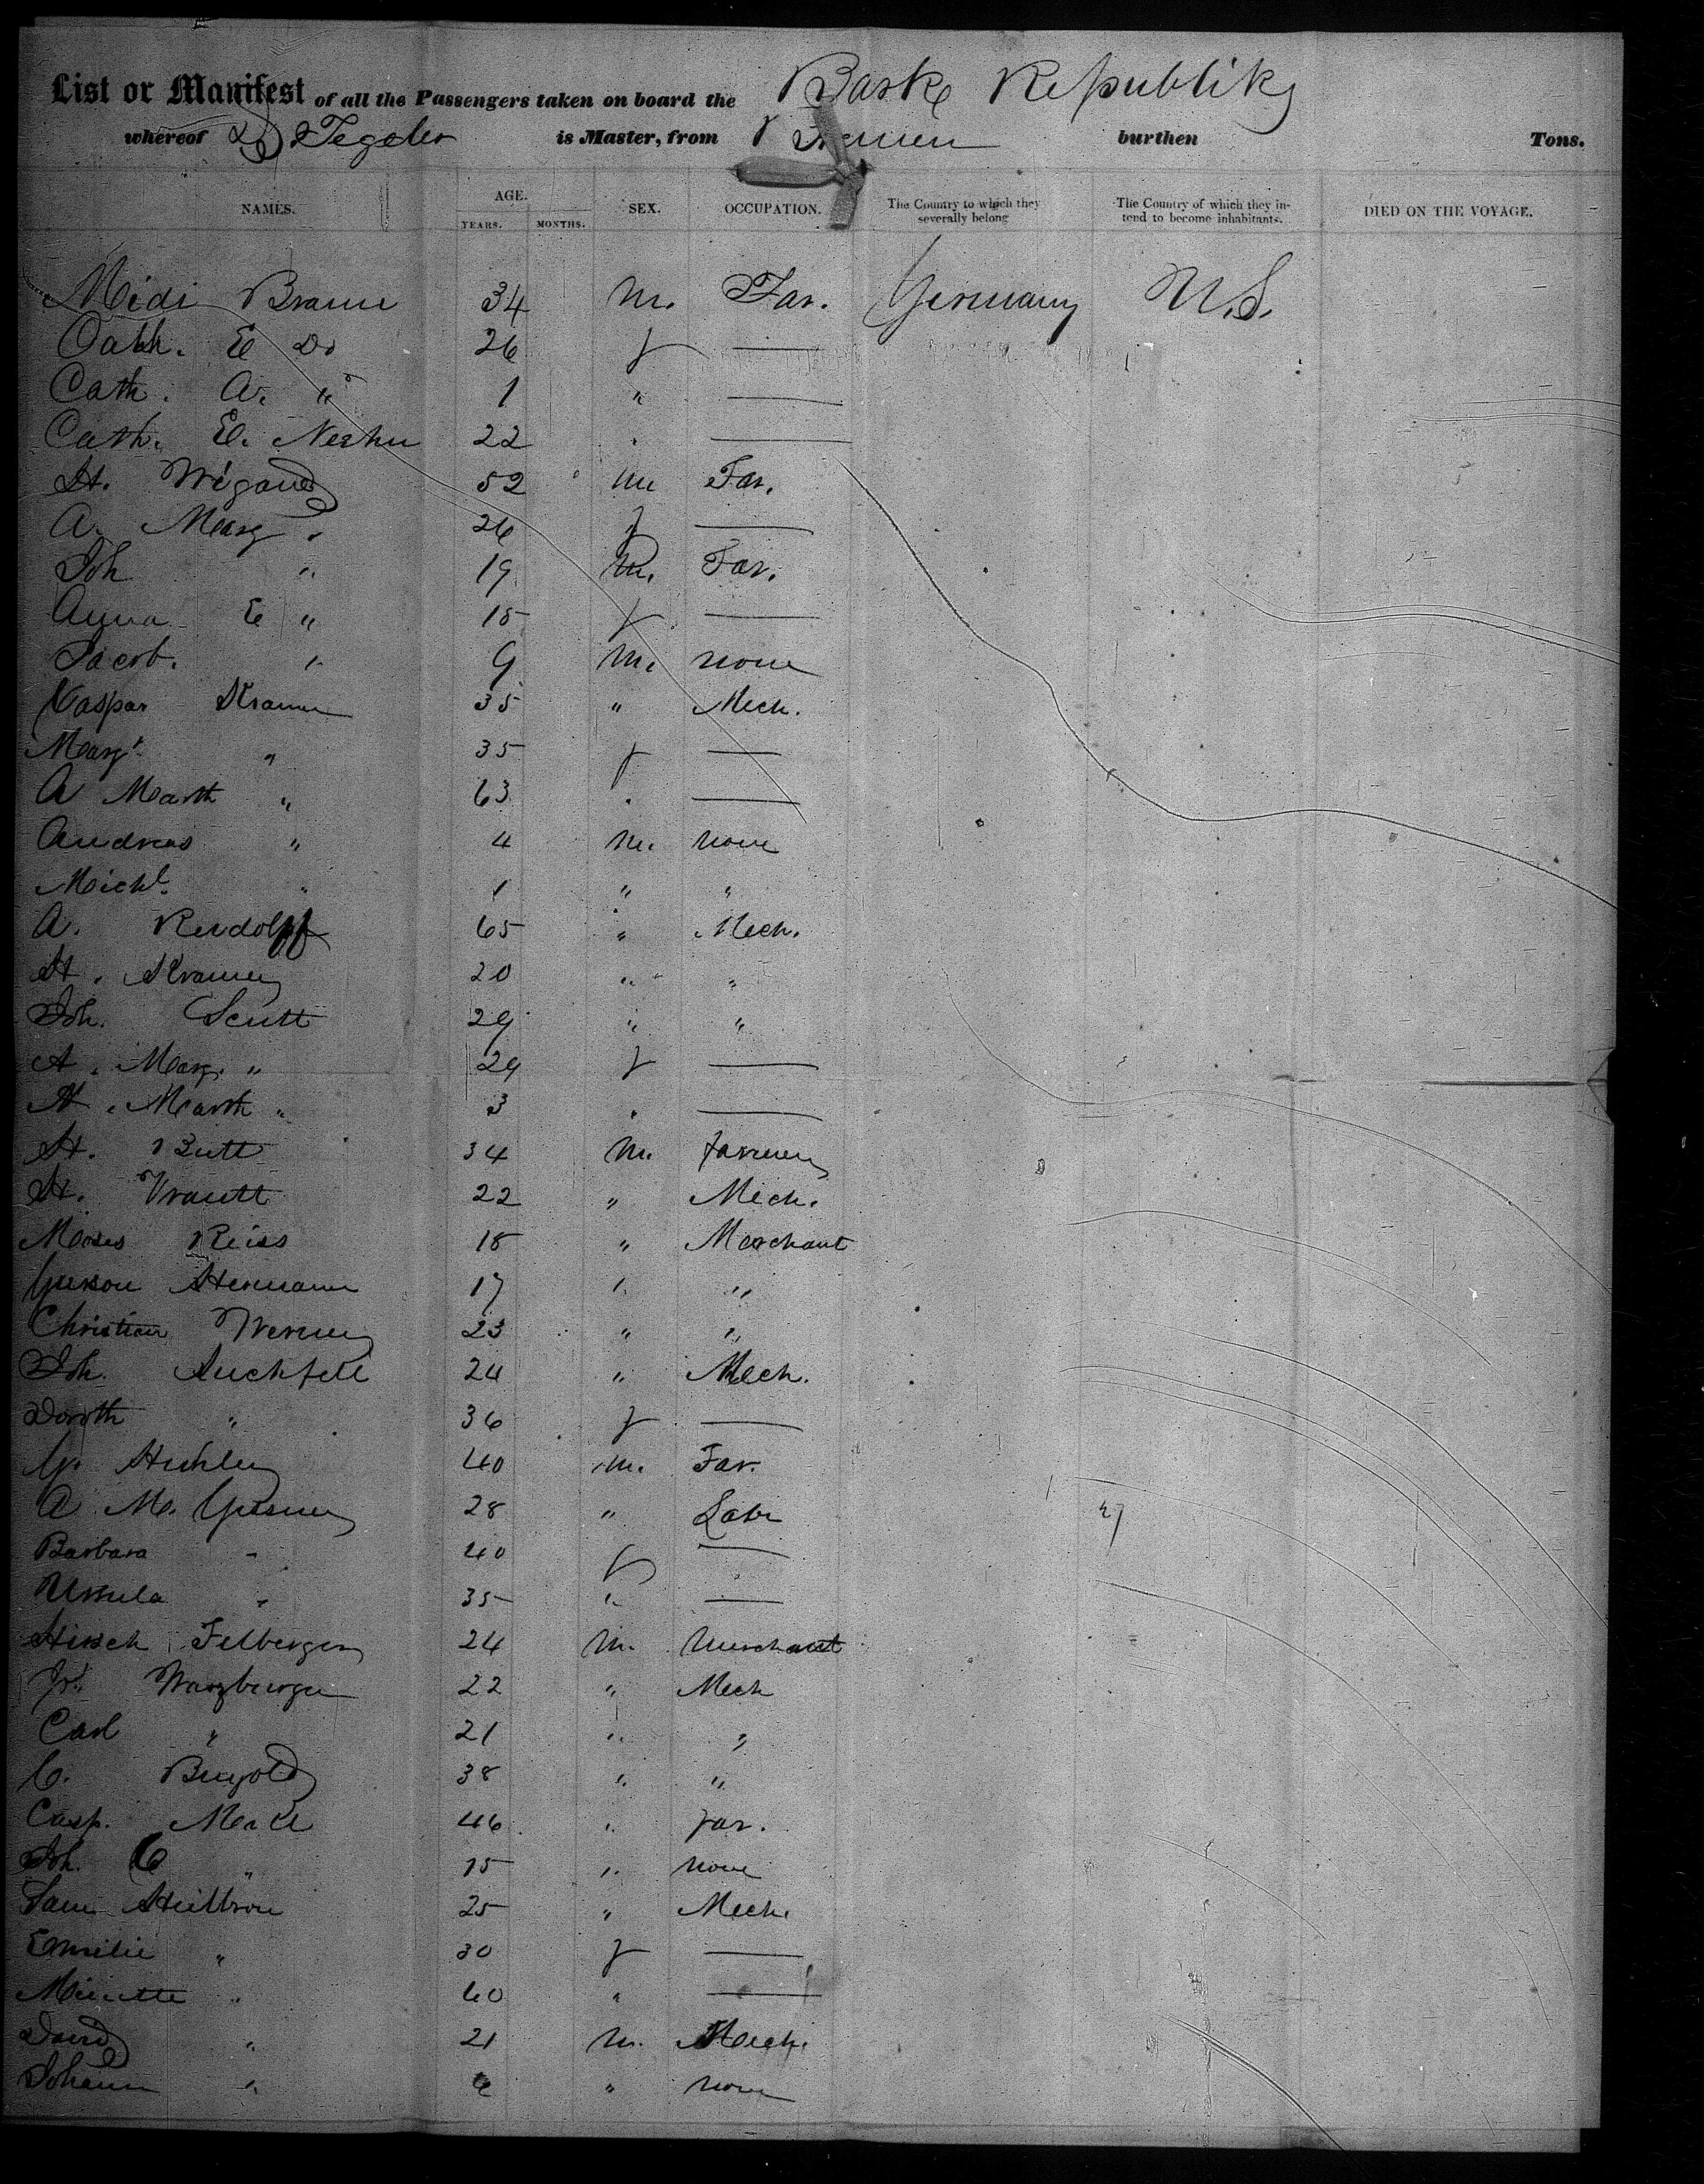 List or Manifest of all the Passengers taken on board the Barke Republik
whereof D Tegeler is Master, from Bremen burthen Tons.
NAMES. AGE. YEARS. MONTHS. SEX. OCCUPATION. The Country to which they severally belong The Country of which they intend to become inhabitants. DIED ON THE VOYAGE.
Midi Braun 34 M. Far. Germany U.S.
Cath. E Do 26 f —
Cath. A. " 1 " —
Cath. E. 22 " —
H. Wigand 52 m Far.
A. Marg " 26 f —
Joh " 19 m. Far.
Anna E " 15 f —
Jacob. " 9 m. none
Caspar Kramer 35 " Mech.
Margt. " 35 f —
A Marth " 63 " —
Andreas " 4 m. none
Michl. " 1 " "
A. Rudolff 65 " Mech.
H. Kramer 20 " "
Joh. Scutt 29 " "
A. Marg. " 29 f —
A. Marth " 3 " —
H. Butt 34 m. farmer
H. Vrautt 22 " Mech.
Moses Reiss 18 " Merchant
Gerson Hermann 17 " "
Christian Werner 23 " "
Joh. 24 " Mech.
Doroth " 36 f —
G. 40 m. Far.
A M. Gessner 28 " Labr
Barbara " 40 f —
Ursula " 35 " —
Hirsch Felberger 24 m. Merchant
Warzburger 22 " Mech
Carl " 21 " "
C. 38 " "
Casp. 46 " far.
Joh. C " 15 " none
Sam Heilbron 25 " Mech.
Emilie " 30 f —
Minette " 60 " —
David " 21 m. Mech.
Johann " 6 " none